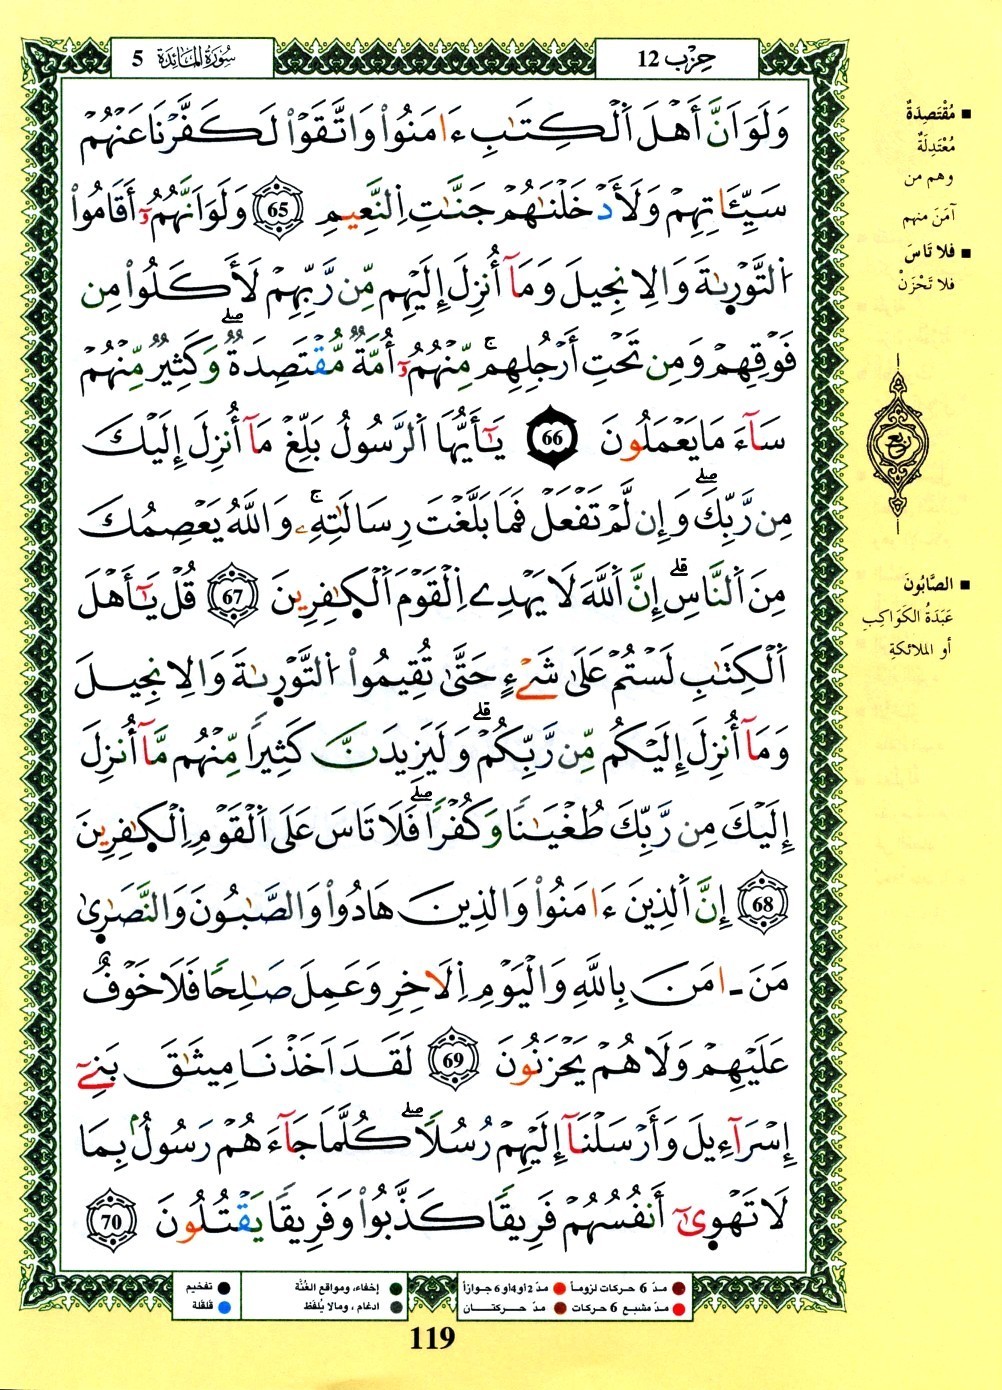 سُورَةُ المَائدَة 5
حِزْب 12
وَلَوَ اَنَّ أَهْلَ اَلْكِتَٰبِ ءَامَنُواْ وَاتَّقَوْاْ لَكَفَّرْنَا عَنْهُمْ
سَيِّـَٔاتِهِمْ وَلَأَدْخَلْنَٰهُمْ جَنَّٰتِ اِلنَّعِيمِ 65 وَلَوَ اَنَّهُمُۥٓ أَقَامُواْ
اُلتَّوْرٜىٰةَ وَالِانجِيلَ وَمَآ أُنزِلَ إِلَيْهِم مِّن رَّبِّهِمْ لَأَكَلُواْ مِن
فَوْقِهِمْ وَمِن تَحْتِ أَرْجُلِهِمۚ مِّنْهُمُۥٓ أُمَّةٌ مُّقْتَصِدَةٌۖ وَكَثِيرٌ مِّنْهُمْ
سَآءَ مَا يَعْمَلُونَ 66 يَٰٓأَيُّهَا اَلرَّسُولُ بَلِّغْ مَآ أُنزِلَ إِلَيْكَ
مِن رَّبِّكَۖ وَإِن لَّمْ تَفْعَلْ فَمَا بَلَّغْتَ رِسَالَٰتِهِۦۚ وَاللَّهُ يَعْصِمُكَ
مِنَ اَلنَّاسِۗ إِنَّ اَللَّهَ لَا يَهْدِے اِلْقَوْمَ اَلْكٰٜفِرِينَ 67 قُلْ يَٰٓأَهْلَ
اَلْكِتَٰبِ لَسْتُمْ عَلَىٰ شَےْءٍ حَتَّىٰ تُقِيمُواْ اُلتَّوْرٜىٰةَ وَالِانجِيلَ
وَمَآ أُنزِلَ إِلَيْكُم مِّن رَّبِّكُمْۗ وَلَيَزِيدَنَّ كَثِيرًا مِّنْهُم مَّآ أُنزِلَ
إِلَيْكَ مِن رَّبِّكَ طُغْيَٰنًا وَكُفْرًاۖ فَلَا تَاسَ عَلَى اَلْقَوْمِ اِلْكٰٜفِرِينَ
68 إِنَّ اَلذِينَ ءَامَنُواْ وَالذِينَ هَادُواْ وَالصَّٰبُونَ وَالنَّصَٰرٜىٰ
مَنَ ـ امَنَ بِاللَّهِ وَالْيَوْمِ اِلَاخِرِ وَعَمِلَ صَٰلِحًا فَلَا خَوْفٌ
عَلَيْهِمْ وَلَا هُمْ يَحْزَنُونَ 69 لَقَدَ اَخَذْنَا مِيثَٰقَ بَنِےٓ
إِسْرَآءِيلَ وَأَرْسَلْنَآ إِلَيْهِمْ رُسُلًاۖ كُلَّمَا جَآءَهُمْ رَسُولُۢ بِمَا
لَا تَهْوٜىٰٓ أَنفُسُهُمْ فَرِيقًا كَذَّبُواْ وَفَرِيقًا يَقْتُلُونَ 70
■ مُقْتَصِدَةٌ
مُعْتَدِلَةٌ
وهم من
آمَنَ منهم
■ فلا تَاسَ
فلا تَحْزَنْ
ربع
■ الصَّابُونَ
عَبَدَةُ الكَوَاكِبِ
أو الملائكةِ
مدّ 6 حركات لزوماً
مدّ 2 أو 4 أو 6 جوازاً
مدّ مشبع 6 حركات
مدّ حركتان
إخفاء، ومواقع الغُنَّة
ادغام، ومالا يُلفظ
تفخيم
قلقلة
119